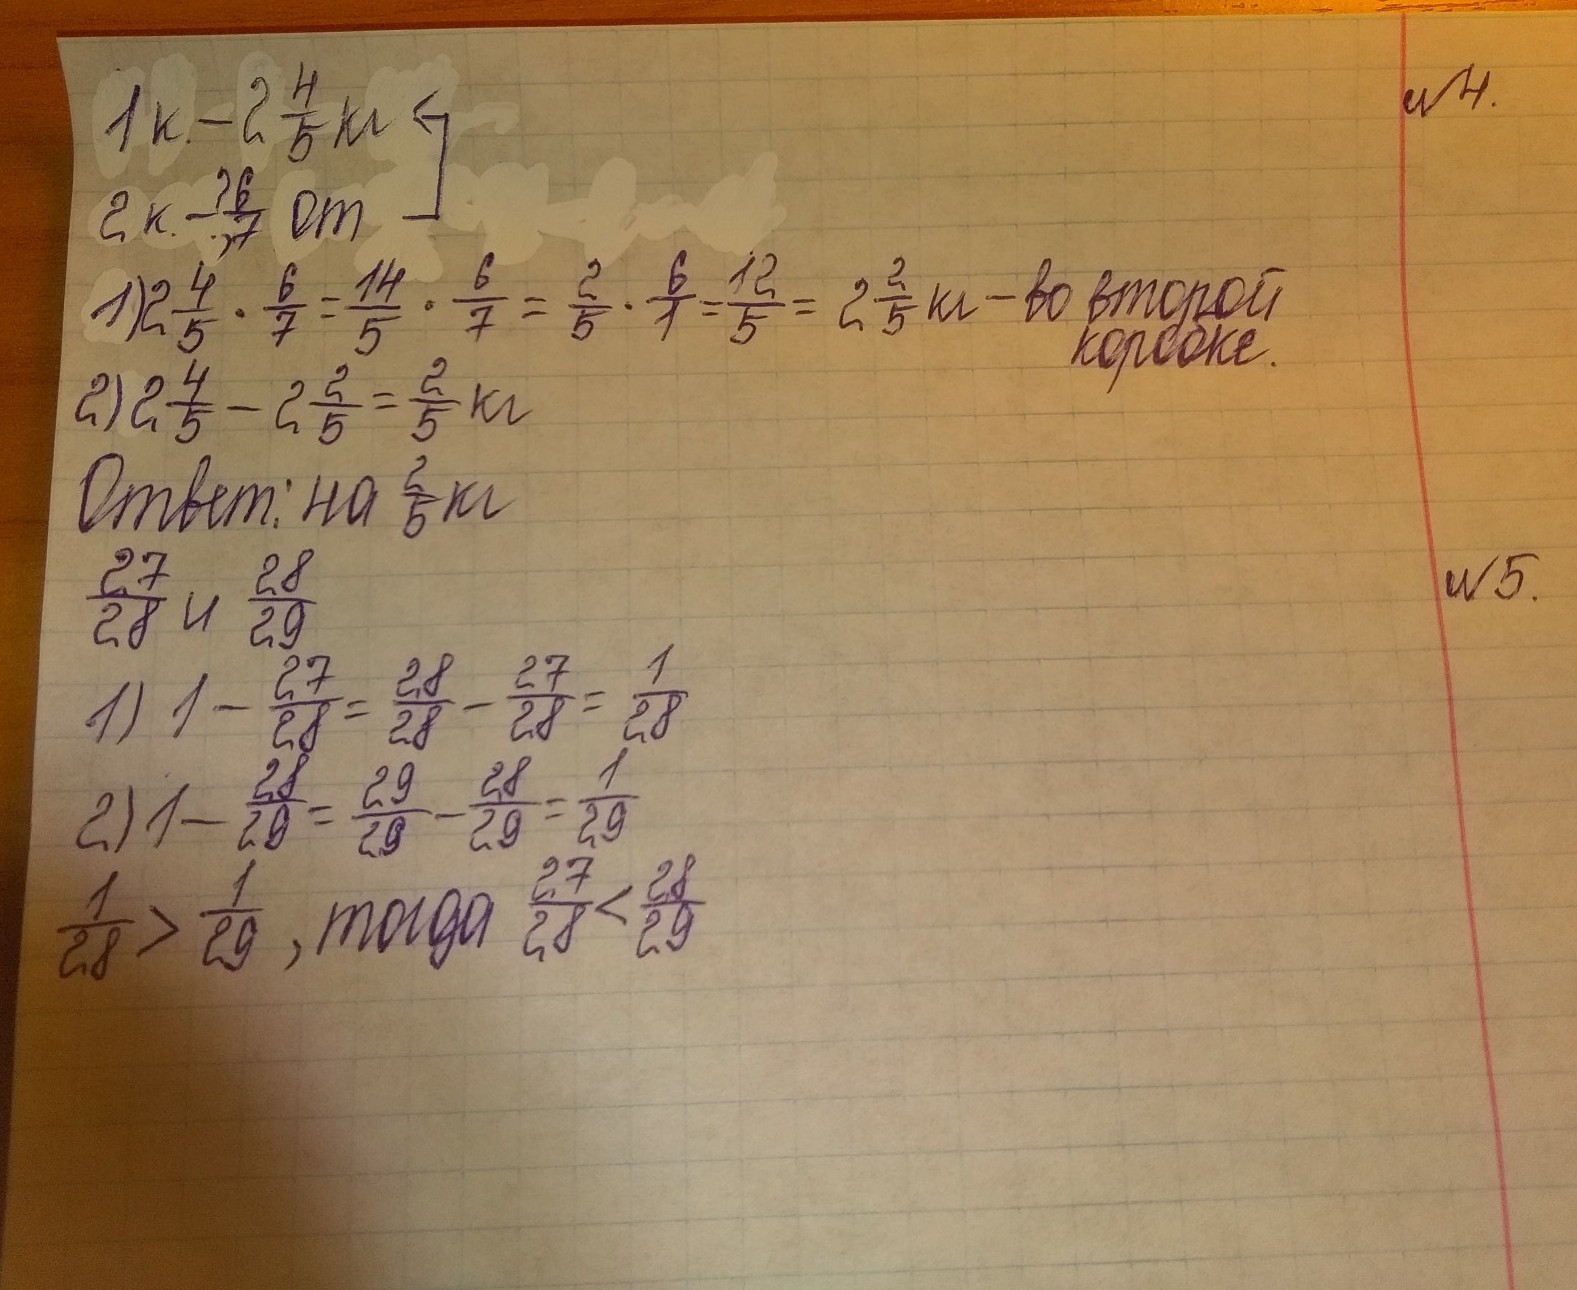 №4.
1 к. – 2 4/5 кг
2 к. – ?, 6/7 от
1) 2 4/5 · 6/7 = 14/5 · 6/7 = 2/5 · 6/1 = 12/5 = 2 2/5 кг – во второй
коробке.
2) 2 4/5 – 2 2/5 = 2/5 кг
Ответ: на 2/5 кг
№5.
27/28 и 28/29
1) 1 – 27/28 = 28/28 – 27/28 = 1/28
2) 1 – 28/29 = 29/29 – 28/29 = 1/29
1/28 > 1/29, тогда 27/28 < 28/29